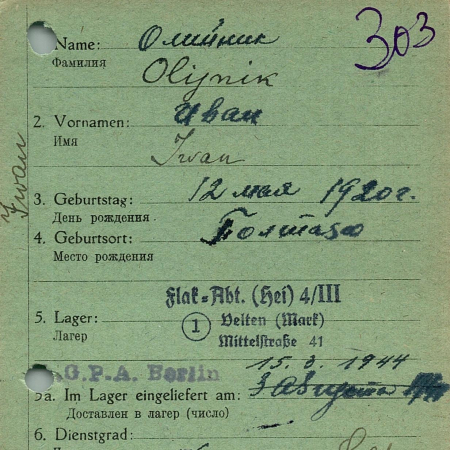 303
Name: Олийник
Фамилия
Olijnik
2. Vornamen: Иван
Имя
Iwan
Iwan
3. Geburtstag: 12 мая 1920г.
День рождения
4. Geburtsort: Полтава
Место рождения
Flak=Abt. (Hei) 4/III
5. Lager: 1 Velten (Mark)
Лагерь
Mittelstraße 41
15. 8. 1944
G.P.A. Berlin
5a. Im Lager eingeliefert am: 3 августа
Доставлен в лагер (число)
6. Dienstgrad: